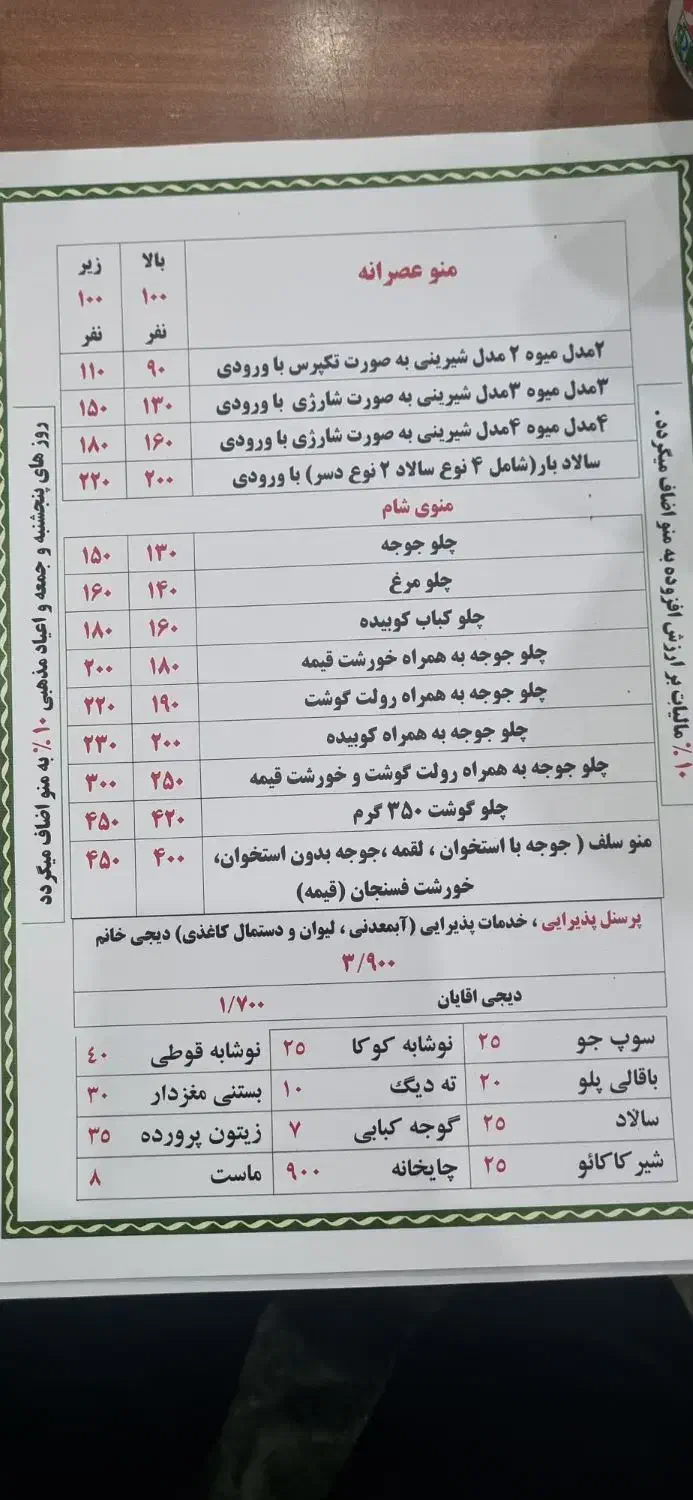 منو عصرانه بالا ۱۰۰ نفر زیر ۱۰۰ نفر
۲مدل میوه ۲ مدل شیرینی به صورت تکپرس با ورودی ۹۰ ۱۱۰
۳مدل میوه ۳مدل شیرینی به صورت شارژی با ورودی ۱۳۰ ۱۵۰
۴مدل میوه ۴مدل شیرینی به صورت شارژی با ورودی ۱۶۰ ۱۸۰
سالاد بار(شامل ۴ نوع سالاد ۲ نوع دسر) با ورودی ۲۰۰ ۲۲۰
منوی شام
چلو جوجه ۱۳۰ ۱۵۰
چلو مرغ ۱۴۰ ۱۶۰
چلو کباب کوبیده ۱۶۰ ۱۸۰
چلو جوجه به همراه خورشت قیمه ۱۸۰ ۲۰۰
چلو جوجه به همراه رولت گوشت ۱۹۰ ۲۲۰
چلو جوجه به همراه کوبیده ۲۰۰ ۲۳۰
چلو جوجه به همراه رولت گوشت و خورشت قیمه ۲۵۰ ۳۰۰
چلو گوشت ۳۵۰ گرم ۴۲۰ ۴۵۰
منو سلف ( جوجه با استخوان ، لقمه ،جوجه بدون استخوان، ۴۰۰ ۴۵۰
خورشت فسنجان (قیمه)
پرسنل پذیرایی ، خدمات پذیرایی (آبمعدنی ، لیوان و دستمال کاغذی) دیجی خانم
۳/۹۰۰
دیجی اقایان ۱/۷۰۰
سوپ جو ۲۵ نوشابه کوکا ۲۵ نوشابه قوطی ٤٠
باقالی پلو ۲۰ ته دیگ ۱۰ بستنی مغزدار ۳۰
سالاد ۲۵ گوجه کبابی ۷ زیتون پرورده ۳۵
شیر کاکائو ۲۵ چایخانه ۹۰۰ ماست ۸
۱۰% مالیات بر ارزش افزوده به منو اضاف میگردد.
روز های پنجشنبه و جمعه و اعیاد مذهبی ۱۰% به منو اضاف میگردد